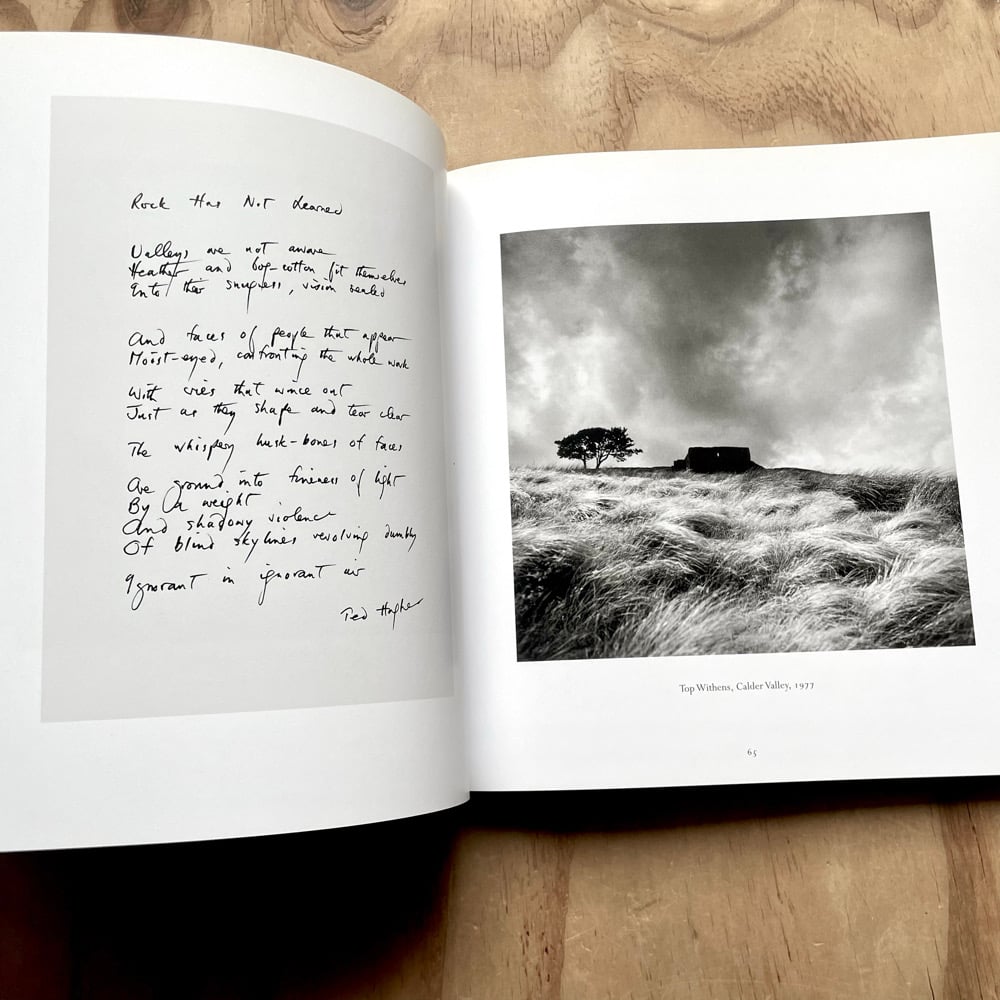 Rock Has Not Learned
Valleys are not aware
Heather and bog-cotton fit themselves
Into their snugness, vision sealed
And faces of people that appear
Moist-eyed, confronting the whole work
With cries that wince out
Just as they shape and tear clear
The whispery husk-bones of faces
Are ground into fineness of light
By a weight
And shadowy violence
Of blind skylines revolving dumbly
Ignorant in ignorant air
Ted Hughes
Top Withens, Calder Valley, 1977
65